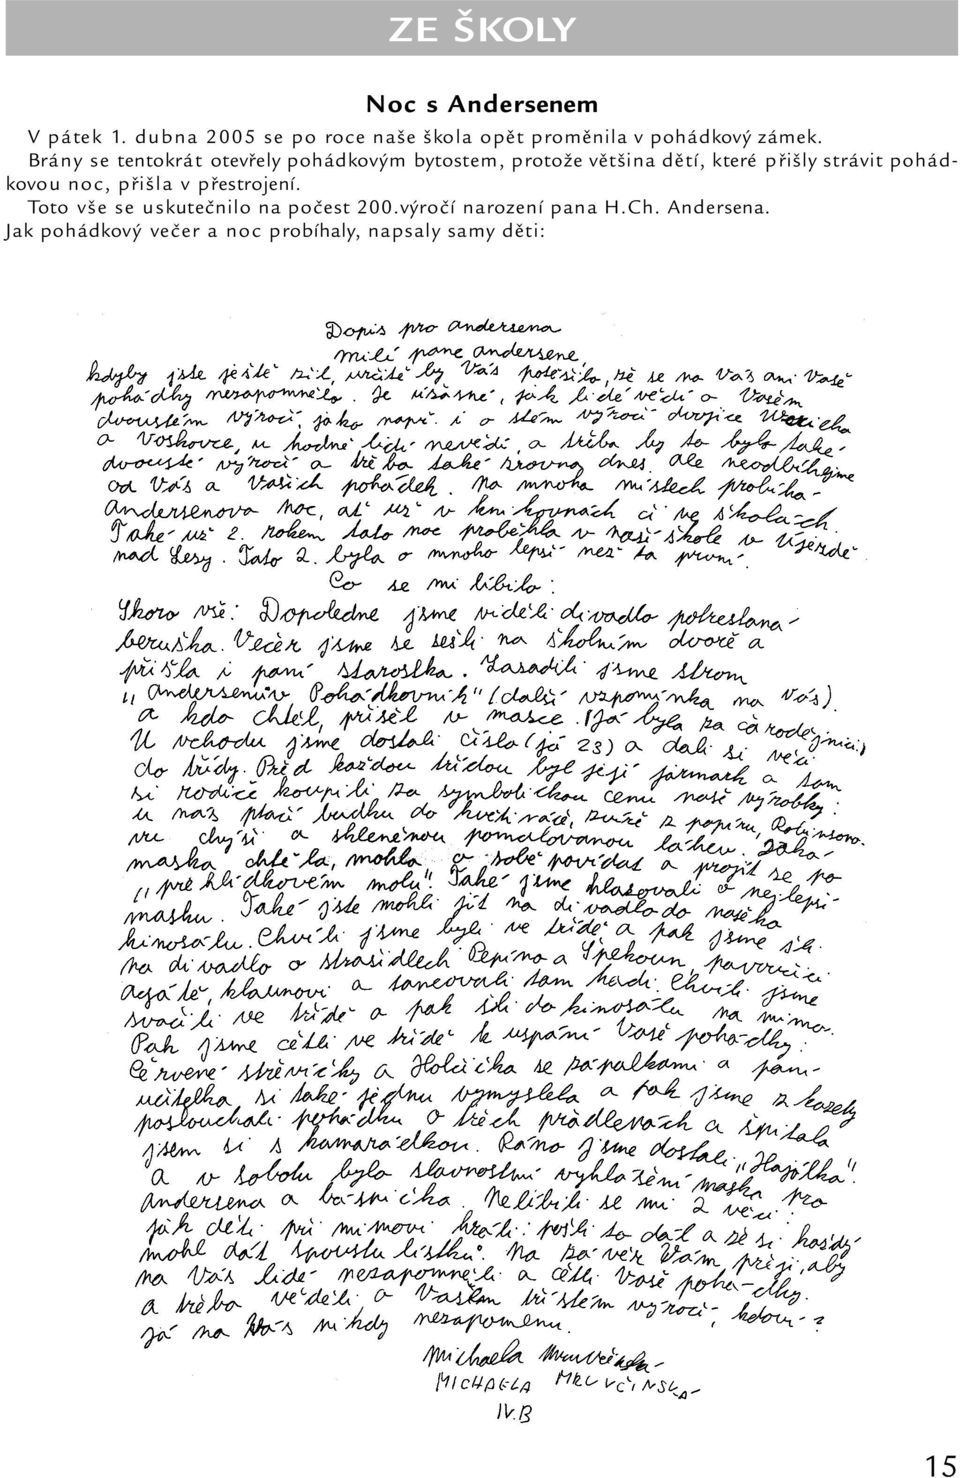 ZE ŠKOLY
Noc s Andersenem
V pátek 1. dubna 2005 se po roce naše škola opět proměnila v pohádkový zámek.
Brány se tentokrát otevřely pohádkovým bytostem, protože většina dětí, které přišly strávit pohád-
kovou noc, přišla v přestrojení.
Toto vše se uskutečnilo na počest 200.výročí narození pana H.Ch. Andersena.
Jak pohádkový večer a noc probíhaly, napsaly samy děti:
Dopis pro Andersena
Milí pane Andersene,
kdyby jste ještě žil, určitě by Vás potěšilo, že se na Vás ani Vaše
pohádky nezapomnělo. Je úžasné, jak lidé vědí o Vašem
dvoustém výročí, jako např. i o stém výročí dvojice Wericha
a Voskovce, u hodně lidí nevědí, a třeba by to bylo také
dvousté výročí a třeba také zrovna dnes. Ale neodbíhejme
od Vás a Vašich pohádek. Na mnoha místech probíhá
Andersenova noc, ať už v knihovnách či ve školách.
Také už 2. rokem tato noc proběhla v naší škole v Újezdě
nad Lesy. Tato 2. byla o mnoho lepší než ta první.
Co se mi líbilo:
Skoro vše: Dopoledne jsme viděli divadlo potrestaná
beruška. Večer jsme se sešli na školním dvoře a
přišla i paní starostka. Zasadili jsme strom
,,Andersenův Pohádkovník" (další vzpomínka na Vás).
a kdo chtěl, přišel v masce. (Já byla za čarodějnici)
U vchodu jsme dostali čísla (já 23) a dali si věci
do třídy. Před každou třídou byl její jarmark a tam
si rodiče koupili za symbolickou cenu naše výrobky:
u nás ptačí budku do květináče, zvíře z papíru, Robinsono-
vu chýši a skleněnou pomalovanou láhev. Jaká
maska chtěla, mohla o sobě povídat a projít se po
,,přehlídkovém molu". Také jsme hlasovali o nejlepší
masku. Také jste mohli jít na divadlo do našeho
kinosálu. Chvíli jsme byli ve třídě a pak jsme šli
na divadlo o strašidlech Pepíno a Špekoun, pavoučici
Agátě, klaunovi a tancovali tam hadi. Chvíli jsme
svačili ve třídě a pak šli do kinosálu na mimo.
Pak jsme četli ve třídě k uspání Vaše pohádky:
Červené střevíčky a Holčička se zápalkami a paní
učitelka si také jednu vymyslela a pak jsme z kazety
poslouchali pohádku o třech přadlenách a špitala
jsem si s kamarádkou. Ráno jsme dostali ,,Hajólka".
A v sobotu bylo slavnostní vyhlášení maska pro
Andersena a básnička. Nelíbili se mi 2 věci:
jak děti při mimovi hráli: pošli to dál a že si každý
mohl dát spoustu lístků. Na závěr Vám přeji, aby
na Vás lidé nezapomněli a četli Vaše pohádky.
a třeba věděli o Vašem třístém výročí, kdoví?
Já na Vás nikdy nezapomenu.
Michaela Mruvčinská
MICHAELA MRUVČINSKÁ
IV.B
15